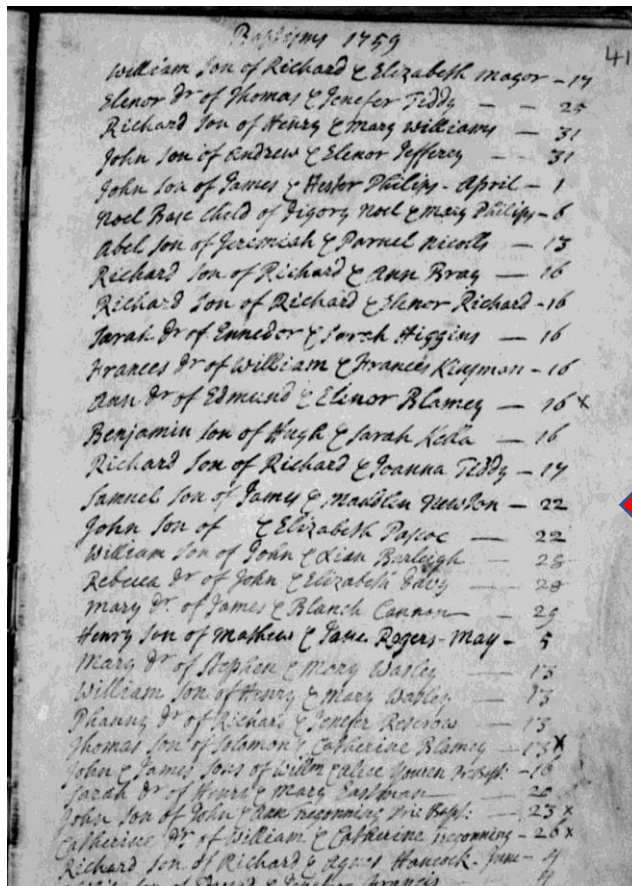 Baptisms 1759
41
William Son of Richard & Elizabeth Magor - 17
Elenor Dr of Thomas & Jenefer Tiddy - - 25
Richard Son of Henry & Mary Williams - 31
John Son of Andrew & Elenor Jefferey - 31
John Son of James & Hester Philips - April - 1
Noel Base Child of Digory Noel & Mary Philips - 6
Abel Son of Jeremiah & Parnel Nicolls - 13
Richard Son of Richard & Ann Bray - 16
Richard Son of Richard & Elenor Richard - 16
Sarah Dr of Ennedor & Sarah Higgins - 16
Frances Dr of William & Frances Kinsman - 16
Ann Dr of Edmund & Elenor Blamey - 16 x
Benjamin Son of Hugh & Sarah - 16
Richard Son of Richard & Joanna Tiddy - 17
Samuel Son of James & Newton - 22
John Son of & Elizabeth Pascoe - 22
William Son of John & Burleigh - 28
Rebecca Dr of John & Elizabeth Davy - 28
Mary Dr. of James & Blanch Cannon - 29
Henry Son of Mathew & Jane Rogers - May - 5
Mary Dr of Stephen & Mary Wasley - 13
William Son of Henry & Mary Wasley - 13
Phanny Dr of Richard & Jenefer - 13
Thomas Son of Solomon & Catherine Blamey - 13 x
John & James Sons of Willm & Alice Youren Pr Bapt: - 16
Sarah Dr of Henry & Mary Eastman - 20
John Son of John & Ann Bapt: - 23 x
Catherine Dr of William & Catherine - 26 x
Richard Son of Richard & Agnes Hancock - June - 4
Son of & Jenefer Francis - 4